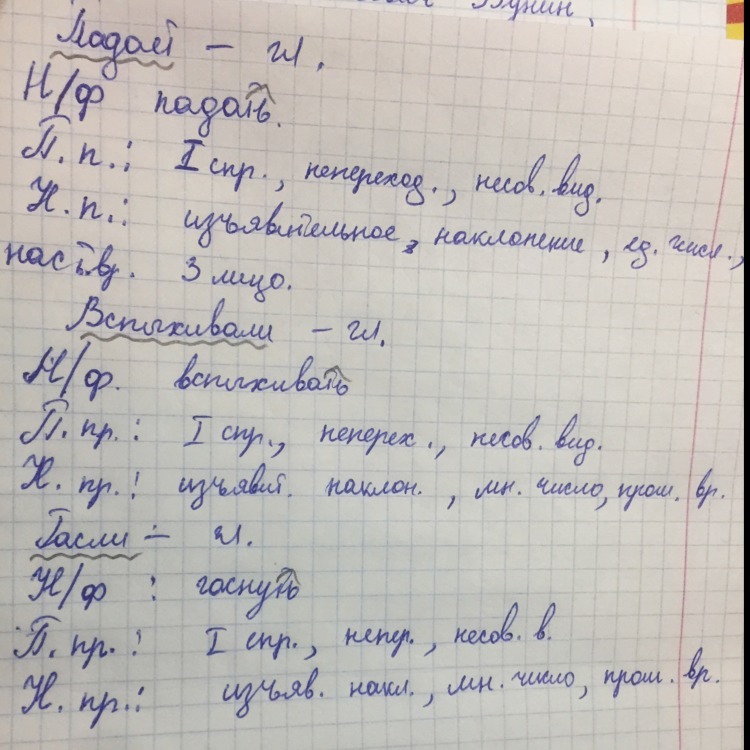 Бунин,
Падает – гл.
Н/ф падать.
П.п.: I спр., непереход., несов. вид.
Н.п.: изъявительное, наклонение, ед. числ.,
наст.вр. 3 лицо.
Вспыхивали – гл.
Н/ф. вспыхивать
П.пр.: I спр., неперех., несов. вид.
Н.пр.: изъявит. наклон., мн. число, прош. вр.
Гасли – гл.
Н/ф : гаснуть
П.пр.: I спр., непер., несов. в.
Н.пр.: изъяв. накл., мн. число, прош. вр.